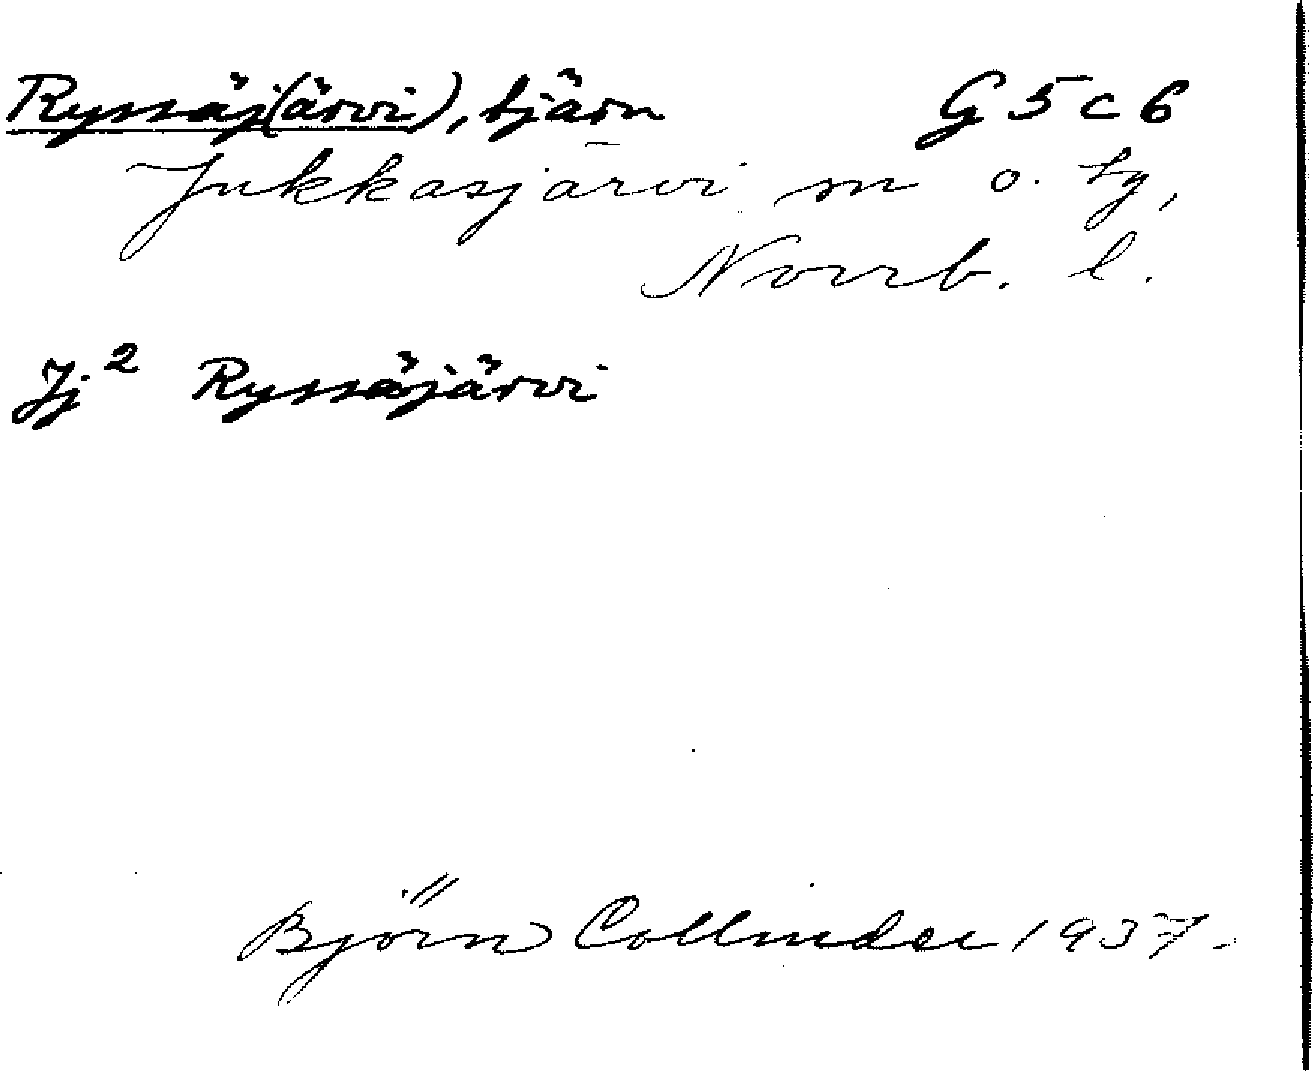 Ryssäj(ärvi), tjärn G 5 c 6
Jukkasjärvi sn o. tg,
Norrb. l.
Jj² Ryssäjärvi
Björn Collinder 1937.